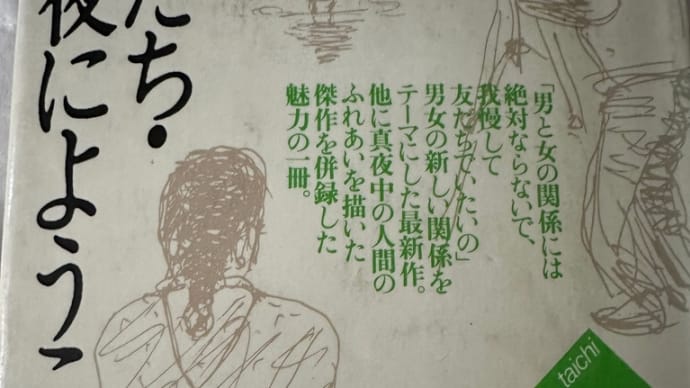 たち・
夜にようこ
「男と女の関係には
絶対ならないで、
我慢して
友だちでいたいの」
男女の新しい関係を
テーマにした最新作。
他に真夜中の人間の
ふれあいを描いた
傑作を併録した
魅力の一冊。
taichi